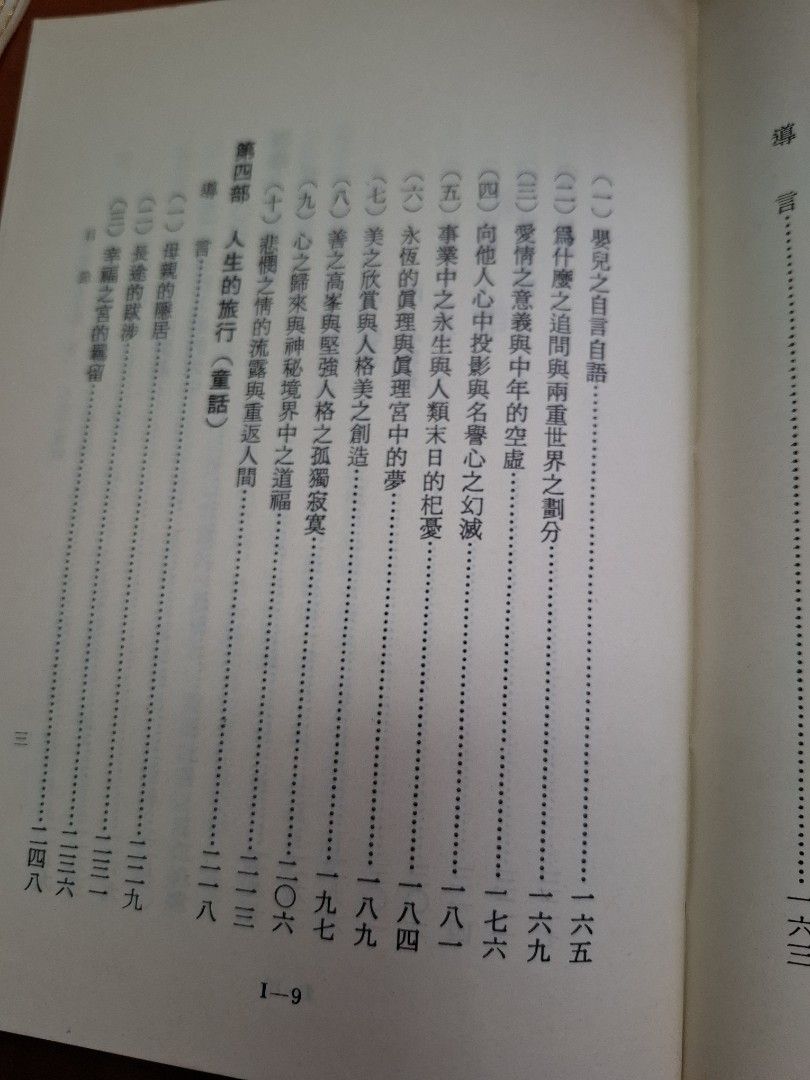 導 言……一六三
(一) 嬰兒之自言自語……一六五
(二) 爲什麼之追問與兩重世界之劃分……一六九
(三) 愛情之意義與中年的空虛……一七六
(四) 向他人心中投影與名譽心之幻滅……一八一
(五) 事業中之永生與人類末日的杞憂……一八四
(六) 永恆的眞理與眞理宮中的夢……一八九
(七) 美之欣賞與人格美之創造……一九七
(八) 善之高峯與堅強人格之孤獨寂寞……二〇六
(九) 心之歸來與神秘境界中之道福……二一三
(十) 悲憫之情的流露與重返人間……二一八
第四部 人生的旅行(童話)
導 言……二二九
(一) 母親的隱居……二三一
(二) 長途的跋涉……二三六
(三) 幸福之宮的羈留……二四八
三
I—9